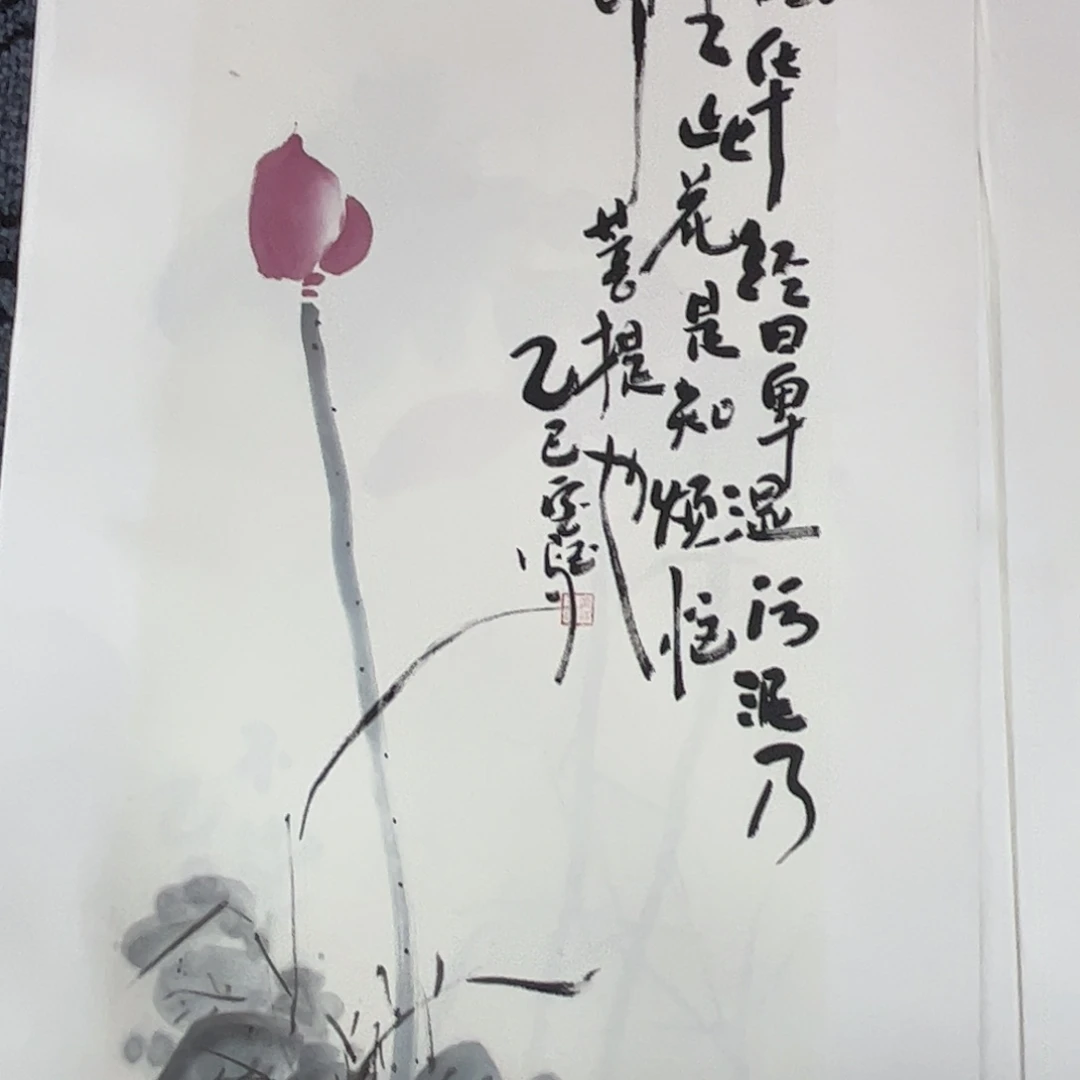 华经曰卑湿污泥乃
生此花是知烦恼
即
菩提也
乙巳